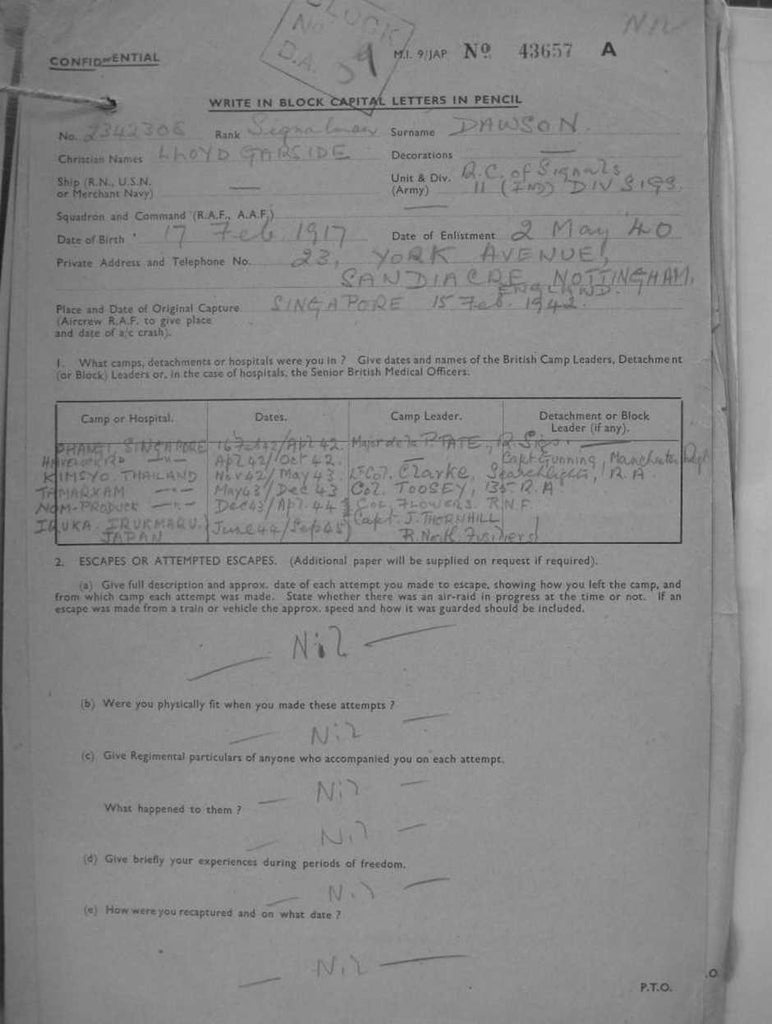 NIL
CONFIDENTIAL
BLOCK
No.
D.A.
M.I. 9/JAP No 43657 A
WRITE IN BLOCK CAPITAL LETTERS IN PENCIL
No. 2342306 Rank Signalman Surname DAWSON.
Christian Names LLOYD GARSIDE Decorations —
Ship (R.N., U.S.N. or Merchant Navy) —
Unit & Div. (Army) R.C. of Signals
11 (IND) DIV SIGS.
Squadron and Command (R.A.F., A.A.F.) —
Date of Birth 17 Feb. 1917 Date of Enlistment 2 May '40
Private Address and Telephone No. 23, YORK AVENUE,
SANDIACRE, NOTTINGHAM,
ENGLAND.
Place and Date of Original Capture SINGAPORE 15 Feb. 1942.
(Aircrew R.A.F. to give place
and date of a/c crash).
1. What camps, detachments or hospitals were you in ? Give dates and names of the British Camp Leaders, Detachment
(or Block) Leaders or, in the case of hospitals, the Senior British Medical Officers.
Camp or Hospital. Dates. Camp Leader. Detachment or Block Leader (if any).
CHANGI, SINGAPORE 16 Feb 42/Apl 42. Major de la R. Sigs. —
Apl 42/Oct 42. — Capt Gunning, Manchester Regt
KIMSYO, THAILAND Nov 42/May 43. Lt Col. Clarke, Searchlights, R.A.
TAMARKAM —"— May 43/Dec 43 Col. TOOSEY, 135 R.A.
NOM-PRODUCK —"— Dec 43/Apl. 44 Col. FLOWERS. R.N.F.
JAPAN June 44/Sep 45 Capt. J. THORNHILL
R. North. Fusiliers
2. ESCAPES OR ATTEMPTED ESCAPES. (Additional paper will be supplied on request if required).
(a) Give full description and approx. date of each attempt you made to escape, showing how you left the camp, and
from which camp each attempt was made. State whether there was an air-raid in progress at the time or not. If an
escape was made from a train or vehicle the approx. speed and how it was guarded should be included.
— Nil —
(b) Were you physically fit when you made these attempts ?
— Nil —
(c) Give Regimental particulars of anyone who accompanied you on each attempt.
— Nil —
What happened to them ?
— Nil —
(d) Give briefly your experiences during periods of freedom.
— Nil —
(e) How were you recaptured and on what date ?
— Nil —
P.T.O.